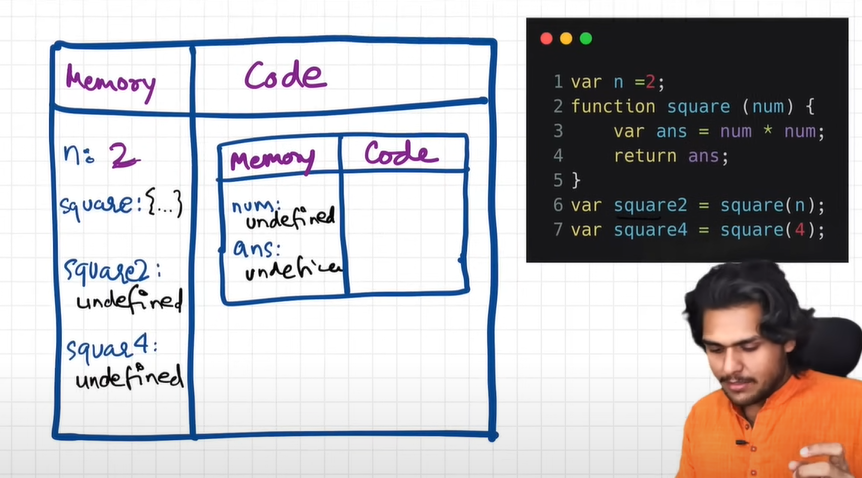 Memory
Code
n: 2
square:{...}
square2:
undefined
squar4:
undefined
Memory
Code
num:
undefined
ans:
1 var n =2;
2 function square (num) {
3 var ans = num * num;
4 return ans;
5 }
6 var square2 = square(n);
7 var square4 = square(4);